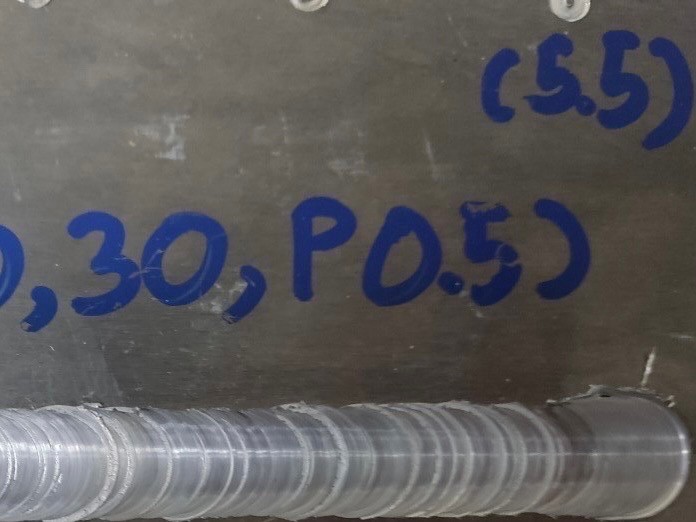 (5.5)
,30,P0.5)